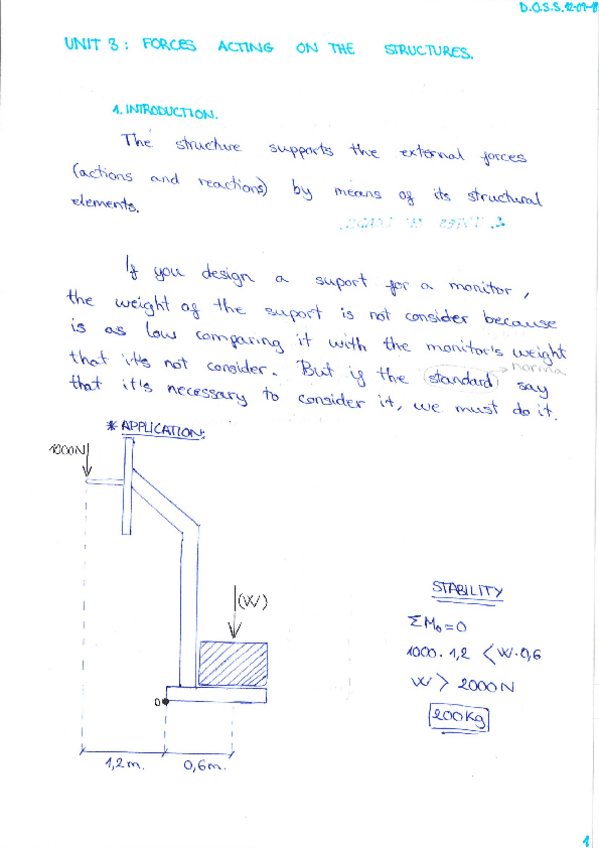 D.O.S.S.
UNIT 3: FORCES ACTING ON THE STRUCTURES.
1. INTRODUCTION.
The structure supports the external forces
(actions and reactions) by means of its structural
elements.
2. TYPES OF LOADS.
If you design a suport for a monitor,
the weight of the suport is not consider because
is as low comparing it with the monitor's weight
norma
that it's not consider. But if the standard say
that it's necessary to consider it, we must do it.
* APPLICATION:
1000N
(W)
0
1,2m. 0,6m.
STABILITY
ΣM₀=0
1000·1,2 < W·0,6
W > 2000N
200Kg
1